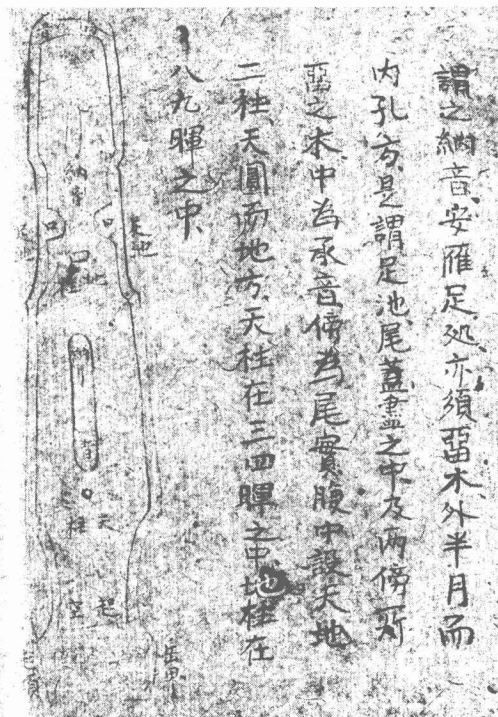 謂之納音、安雁足処亦須畱木外半月而
内孔方、是謂足池、尾蓋盡之中及両傍所
畱之木、中為承音、傍為尾實、腹中設天地
二柱、天圓而地方、天柱在三四暉之中、地柱在
八九暉之中、
納音
足池
口
口
地柱
納音
天柱
起空
岳裏